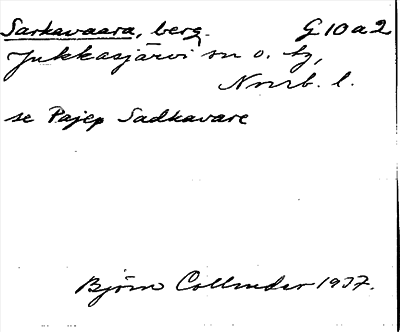 Sarkavaara, berg. G 10 a 2
Jukkasjärvi sn o. tg,
Nnrb. l.
se Pajep Sadkavare
Björn Collinder 1937.